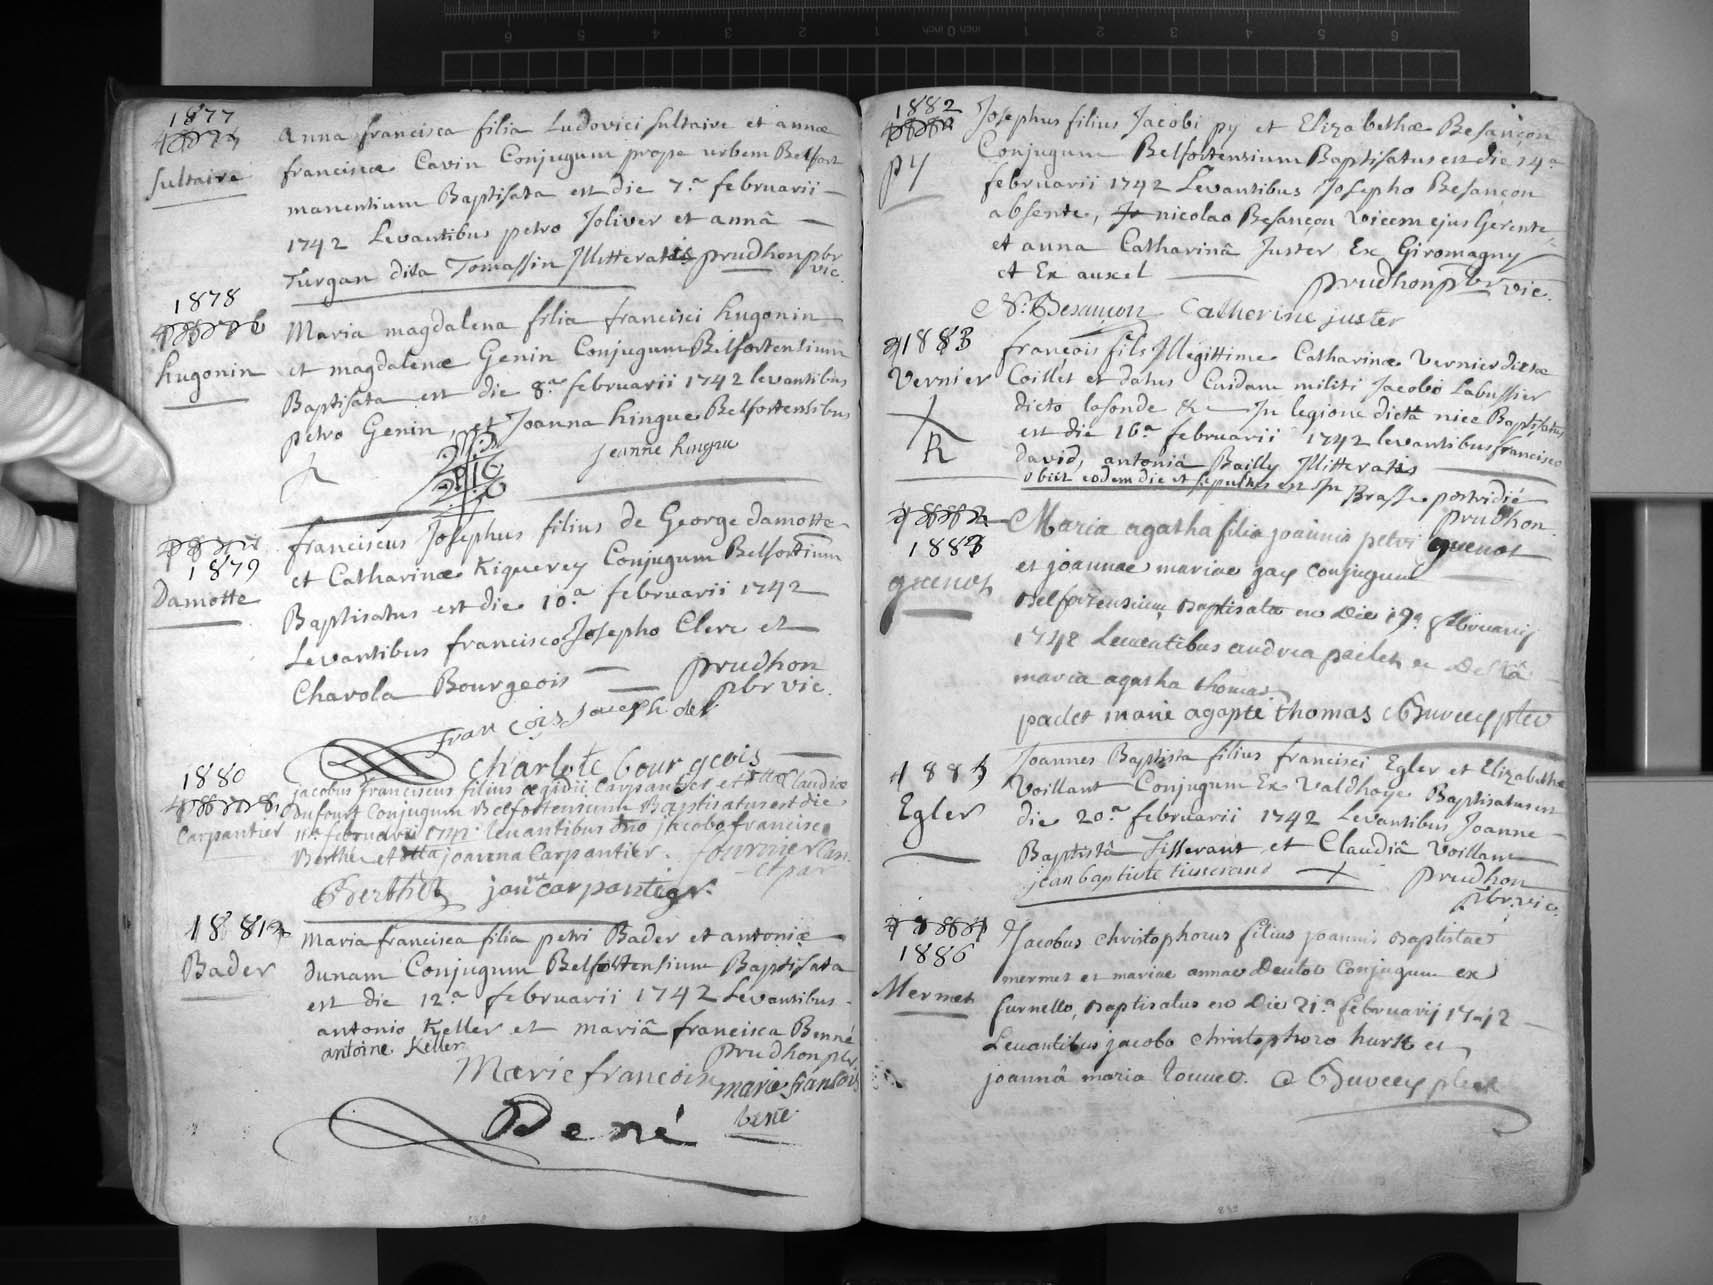 1877
Sultaire
Anna francisca filia Ludovici Sultaire et annæ
franciscæ Cavin Conjugum prope urbem Belfort
manentium Baptisata est die 7.a februarii
1742 Levantibus petro Joliver et annâ
Turgan dita Tomassin Illitteratis prudhon pbr
vic.
1878
hugonin
Maria magdalena filia francisci hugonin
et magdalenæ Genin Conjugum Belfortensium
Baptisata est die 8.a februarii 1742 levantibus
petro Genin, et Joanna hingue Belfortensibus
jeanne hingue
1879
Damotte
franciscus Josephus filius de George damotte
et Catharinæ Kiquerey Conjugum Belfortinum
Baptisatus est die 10.a februarii 1742
Levantibus francisco Josepho Clerc et
Charola Bourgeois prudhon
pbr vic.
francois Joseph cler
charlote bourgeois
1880
Carpantier
jacobus franciscus filius ægidii Carpantier et Claudiæ
Dufourt Conjugum Belfortensium Baptisatus est die
11.a februarii 1742 levantibus dno jacobo francisco
Berthe et joanna Carpantier. fournier Can.
et par
Berthe carpantier
1881
Bader
Maria francisca filia petri Bader et antoniæ
dunam Conjugum Belfortensium Baptisata
est die 12.a februarii 1742 Levantibus
antonio Keller et mariâ francisca Benné
antoine Keller
prudhon pbr
Marie francoise marie fransois
bene
Dené
1882
py
Josephus filius Jacobi py et Elizabethæ Besançon
Conjugum Belfortensium Baptisatus est die 14.a
februarii 1742 Levantibus Josepho Besançon
absente, nicolao Besançon Vicem ejus Gerente
et anna Catharinâ Juster Ex Giromagny
et Ex auxel
prudhon pbr vic.
N. Besancon Catherine juster
1883
Vernier
R
francois fils Illegittime Catharinæ Vernier dictæ
Coillet et datus Cuidam militi Jacobo Labussier
dicto lafonde &c In legione dictâ nice Baptisatus
est die 16.a februarii 1742 levantibus francisco
david, antoniâ Bailly Illitteratis
obiit eodem die et sepultus est In Brasse postridie
prudhon
1883
quenot
Maria agatha filia joannis petri quenot
et joannae mariae gay conjugum
Belfortensium Baptisata Die 19.a februarij
1742 Levantibus andrea padet
maria agatha thomas
padet marie agapte thomas
1885
Egler
Joannes Baptista filius francisci Egler et Elizabethæ
Voillant Conjugum Ex Valdhoye Baptisatus est
die 20.a februarii 1742 Levantibus Joanne
Baptistâ Tisserant et Claudiâ Voillam
jean baptiste tisserand prudhon
pbr. vic.
1886
Mermet
Jacobus christophorus filius joannis Baptistae
mermet et mariae annae Conjugum ex
furnello, Baptisatus Die 21.a februarij 1742
Levantibus jacobo christophoro et
joannâ maria